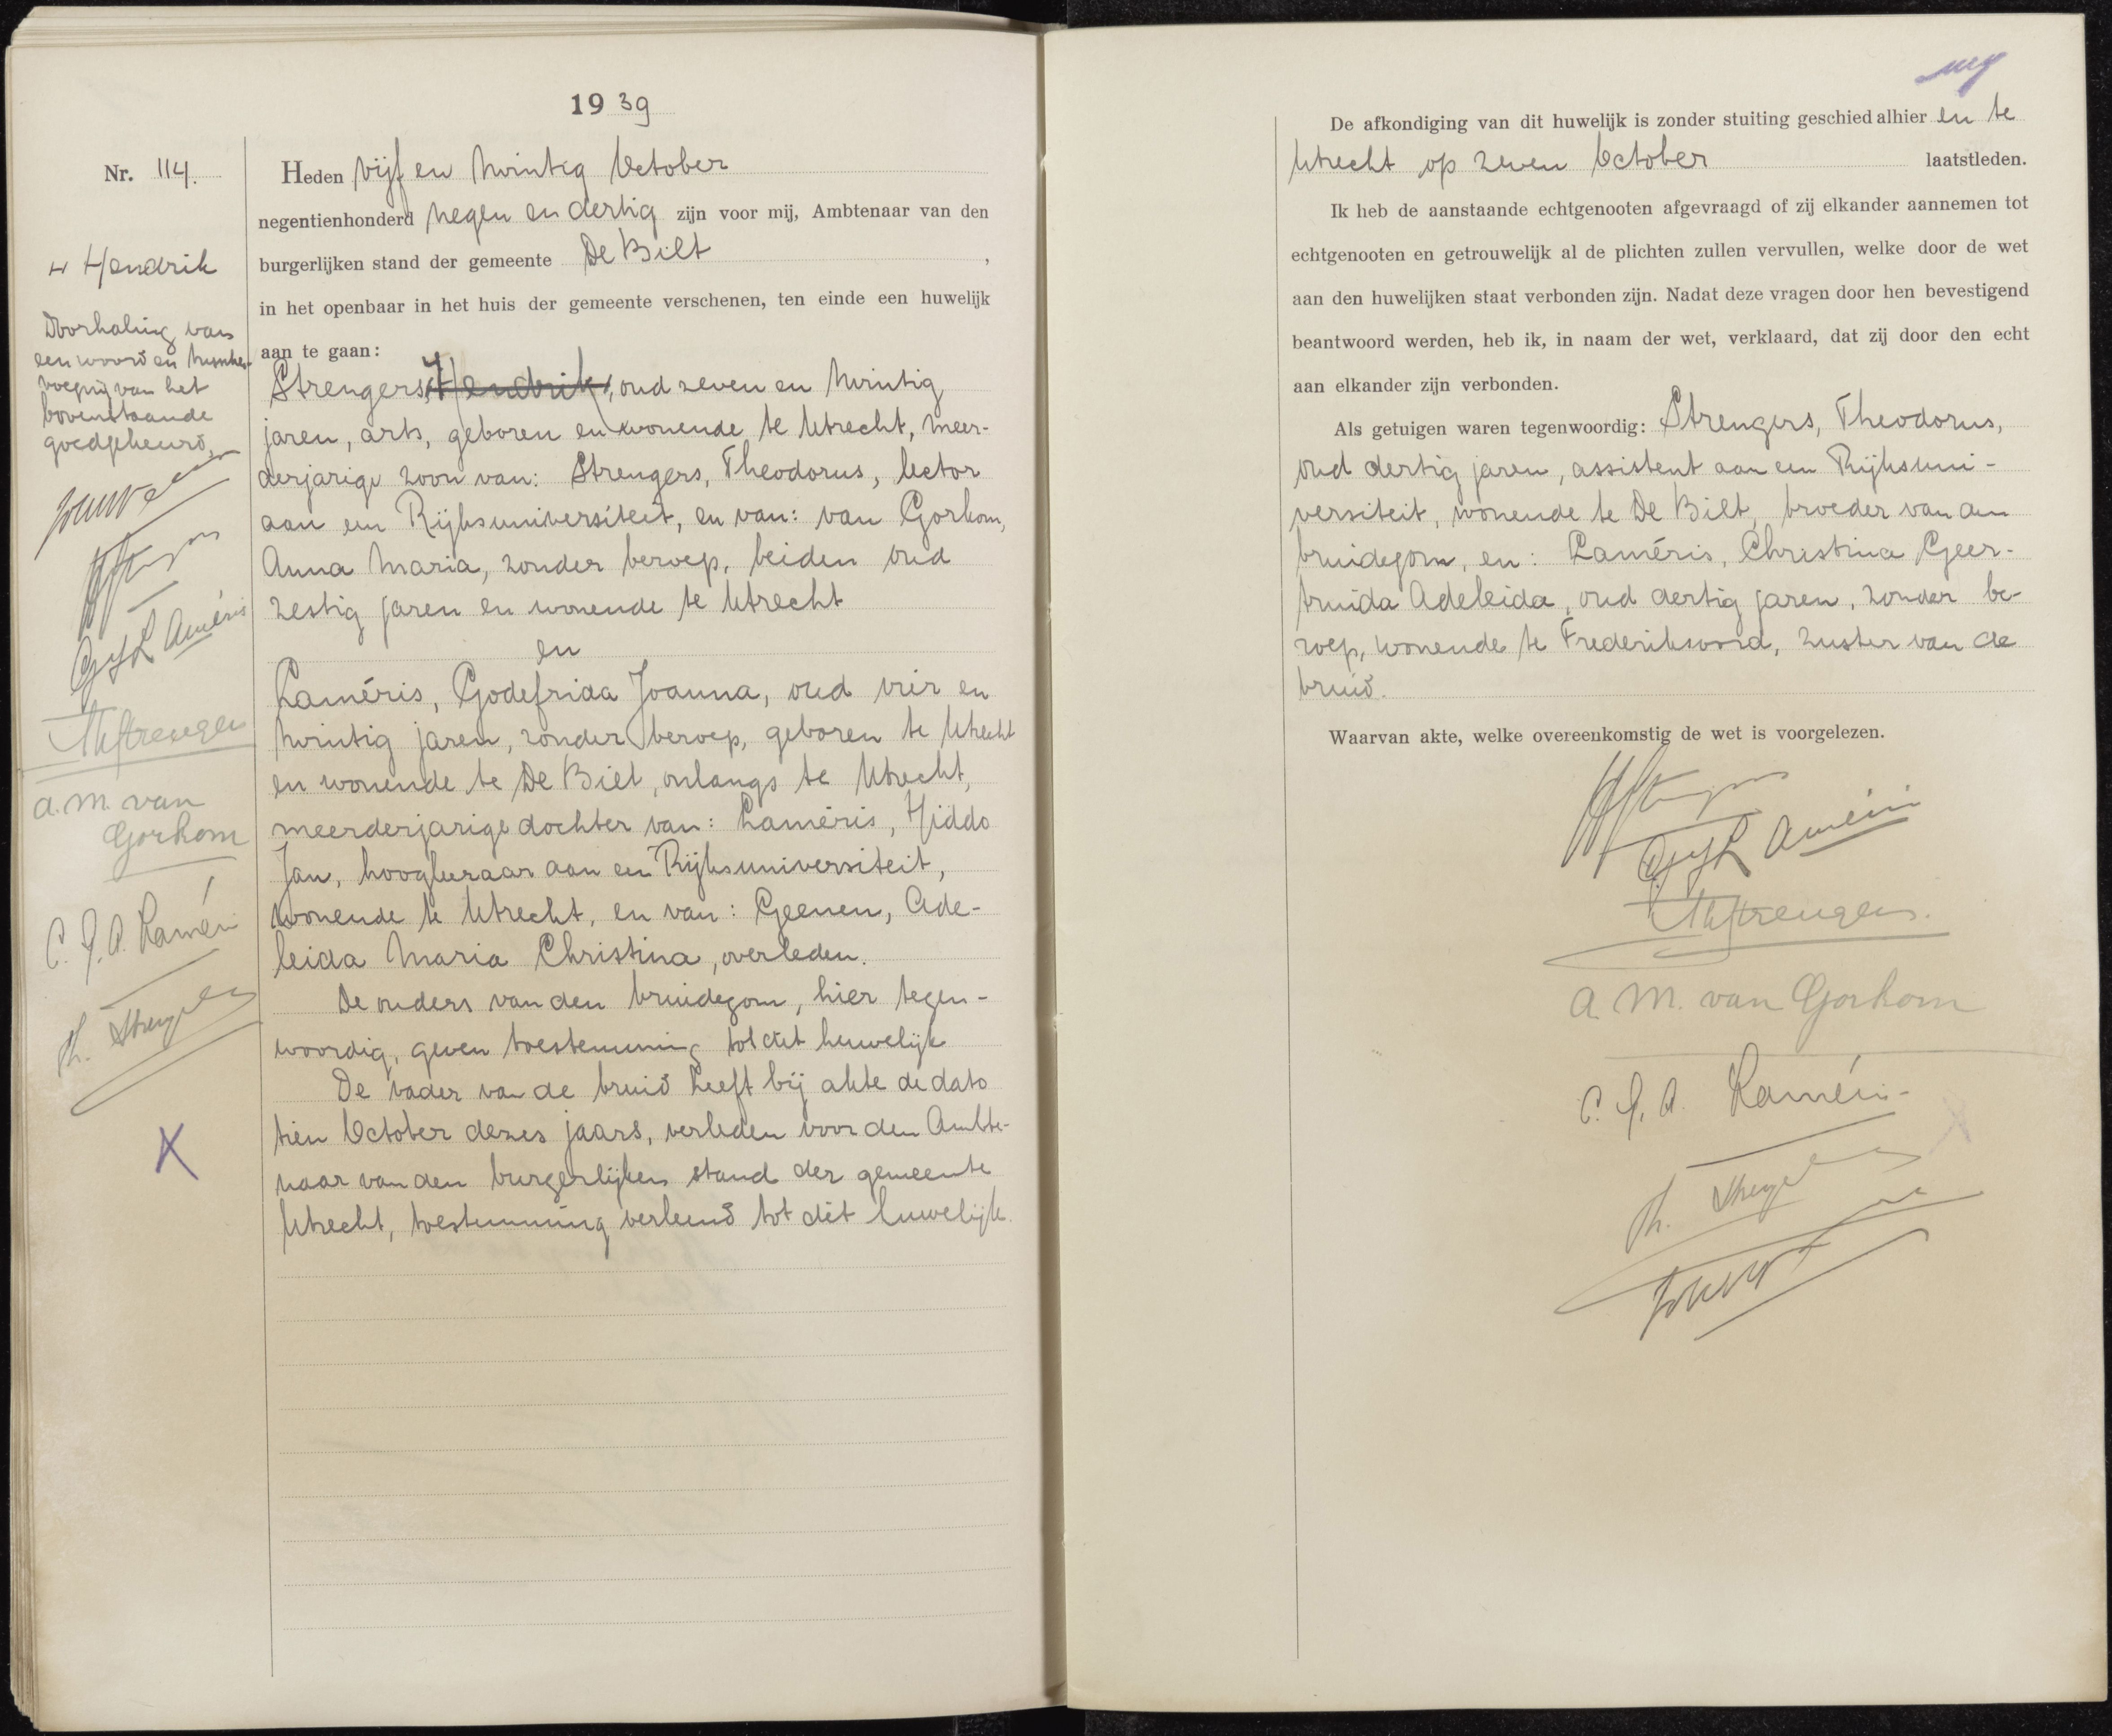 1939
Nr. 114.
Heden vijf en twintig October
negentienhonderd negen en dertig zijn voor mij, Ambtenaar van den
burgerlijken stand der gemeente De Bilt ,
in het openbaar in het huis der gemeente verschenen, ten einde een huwelijk
aan te gaan:
Strengers, Hendrik, oud zeven en twintig
jaren, arts, geboren en wonende te Utrecht, meer-
derjarige zoon van: Strengers, Theodorus, lector
aan een Rijksuniversiteit, en van: van Gorkom,
Anna Maria, zonder beroep, beiden oud
zestig jaren en wonende te Utrecht
en
Laméris, Godefrida Joanna, oud vier en
twintig jaren, zonder beroep, geboren te Utrecht
en wonende te De Bilt, onlangs te Utrecht,
meerderjarige dochter van: Laméris, Hiddo
Jan, hoogleeraar aan een Rijksuniversiteit,
wonende te Utrecht, en van: Geenen, Ade-
leida Maria Christina, overleden.
De ouders van den bruidegom, hier tegen-
woordig, geven toestemming tot dit huwelijk
De vader van de bruid heeft bij akte de dato
tien October dezes jaars, verleden voor den Ambte-
naar van den burgerlijken stand der gemeente
Utrecht, toestemming verleend tot dit huwelijk.
H Hendrik
Doorhaling van
een woord en tusschen-
voeging van het
bovenstaande
goedgekeurd.
GJLAméris
ThStrengers
A. M. van
Gorkom
C. G. A. Laméris
Th. Strengers
X
De afkondiging van dit huwelijk is zonder stuiting geschied alhier en te
Utrecht op zeven October laatstleden.
Ik heb de aanstaande echtgenooten afgevraagd of zij elkander aannemen tot
echtgenooten en getrouwelijk al de plichten zullen vervullen, welke door de wet
aan den huwelijken staat verbonden zijn. Nadat deze vragen door hen bevestigend
beantwoord werden, heb ik, in naam der wet, verklaard, dat zij door den echt
aan elkander zijn verbonden.
Als getuigen waren tegenwoordig: Strengers, Theodorus,
oud dertig jaren, assistent aan een Rijksuni-
versiteit, wonende te De Bilt, broeder van den
bruidegom, en: Laméris, Christina Geer-
truida Adeleida, oud dertig jaren, zonder be-
roep, wonende te Frederiksoord, zuster van de
bruid.
Waarvan akte, welke overeenkomstig de wet is voorgelezen.
GJLAméris
ThStrengers.
A. M. van Gorkom
C. G. A. Laméris
Th. Strengers